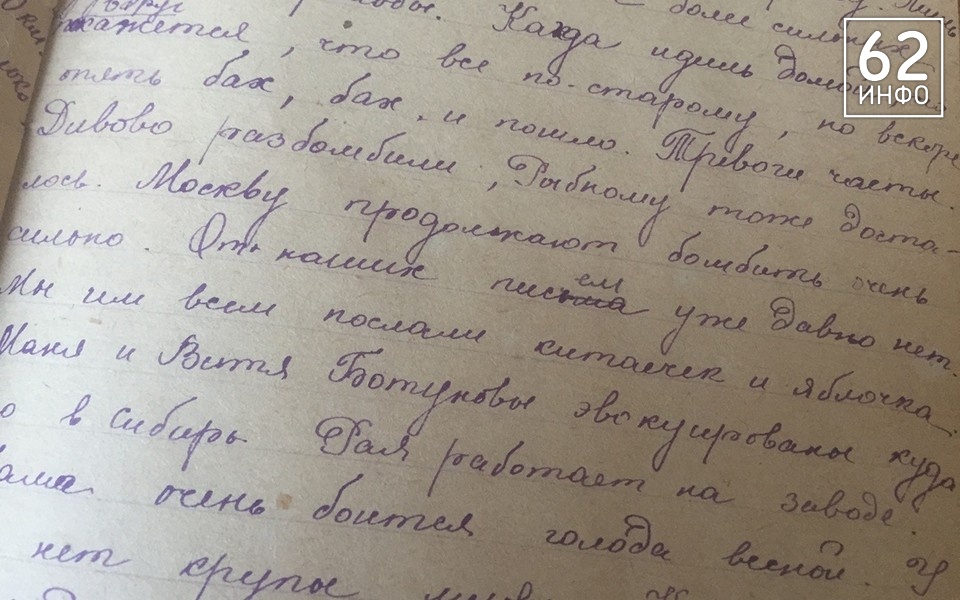 62
ИНФО
более сильных
вдруг
кажется, что все по-старому, но вскоре
Когда идешь домой
опять бах, бах, и пошло. Тревоги часты.
Дивово разбомбили, Рыбному тоже доста-
лось. Москву продолжают бомбить очень
сильно. От наших писем уже давно нет.
Мы им всем послали китаечек и яблочка.
Маня и Витя Ботуновы эвокуированы куда
о в Сибирь Рая работает на заводе.
ама очень боится голода весной. У
нет крупы